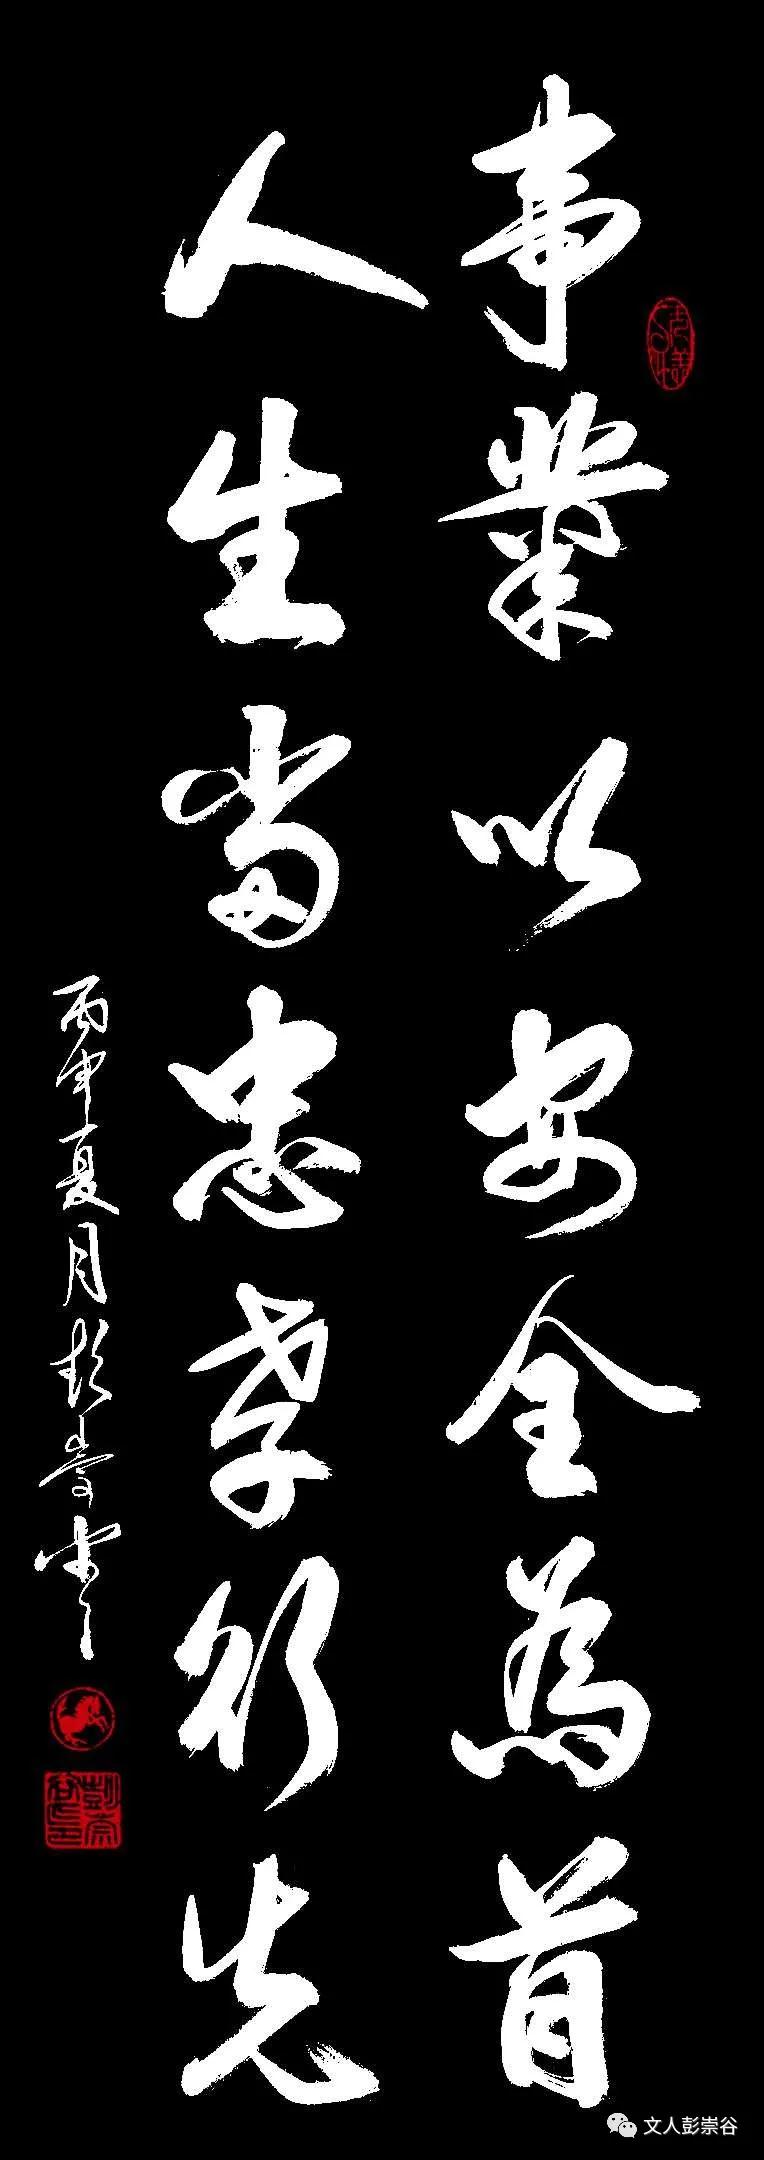 事業以安全為首
人生當忠孝行先
丙申夏月彭崇谷
文人彭崇谷